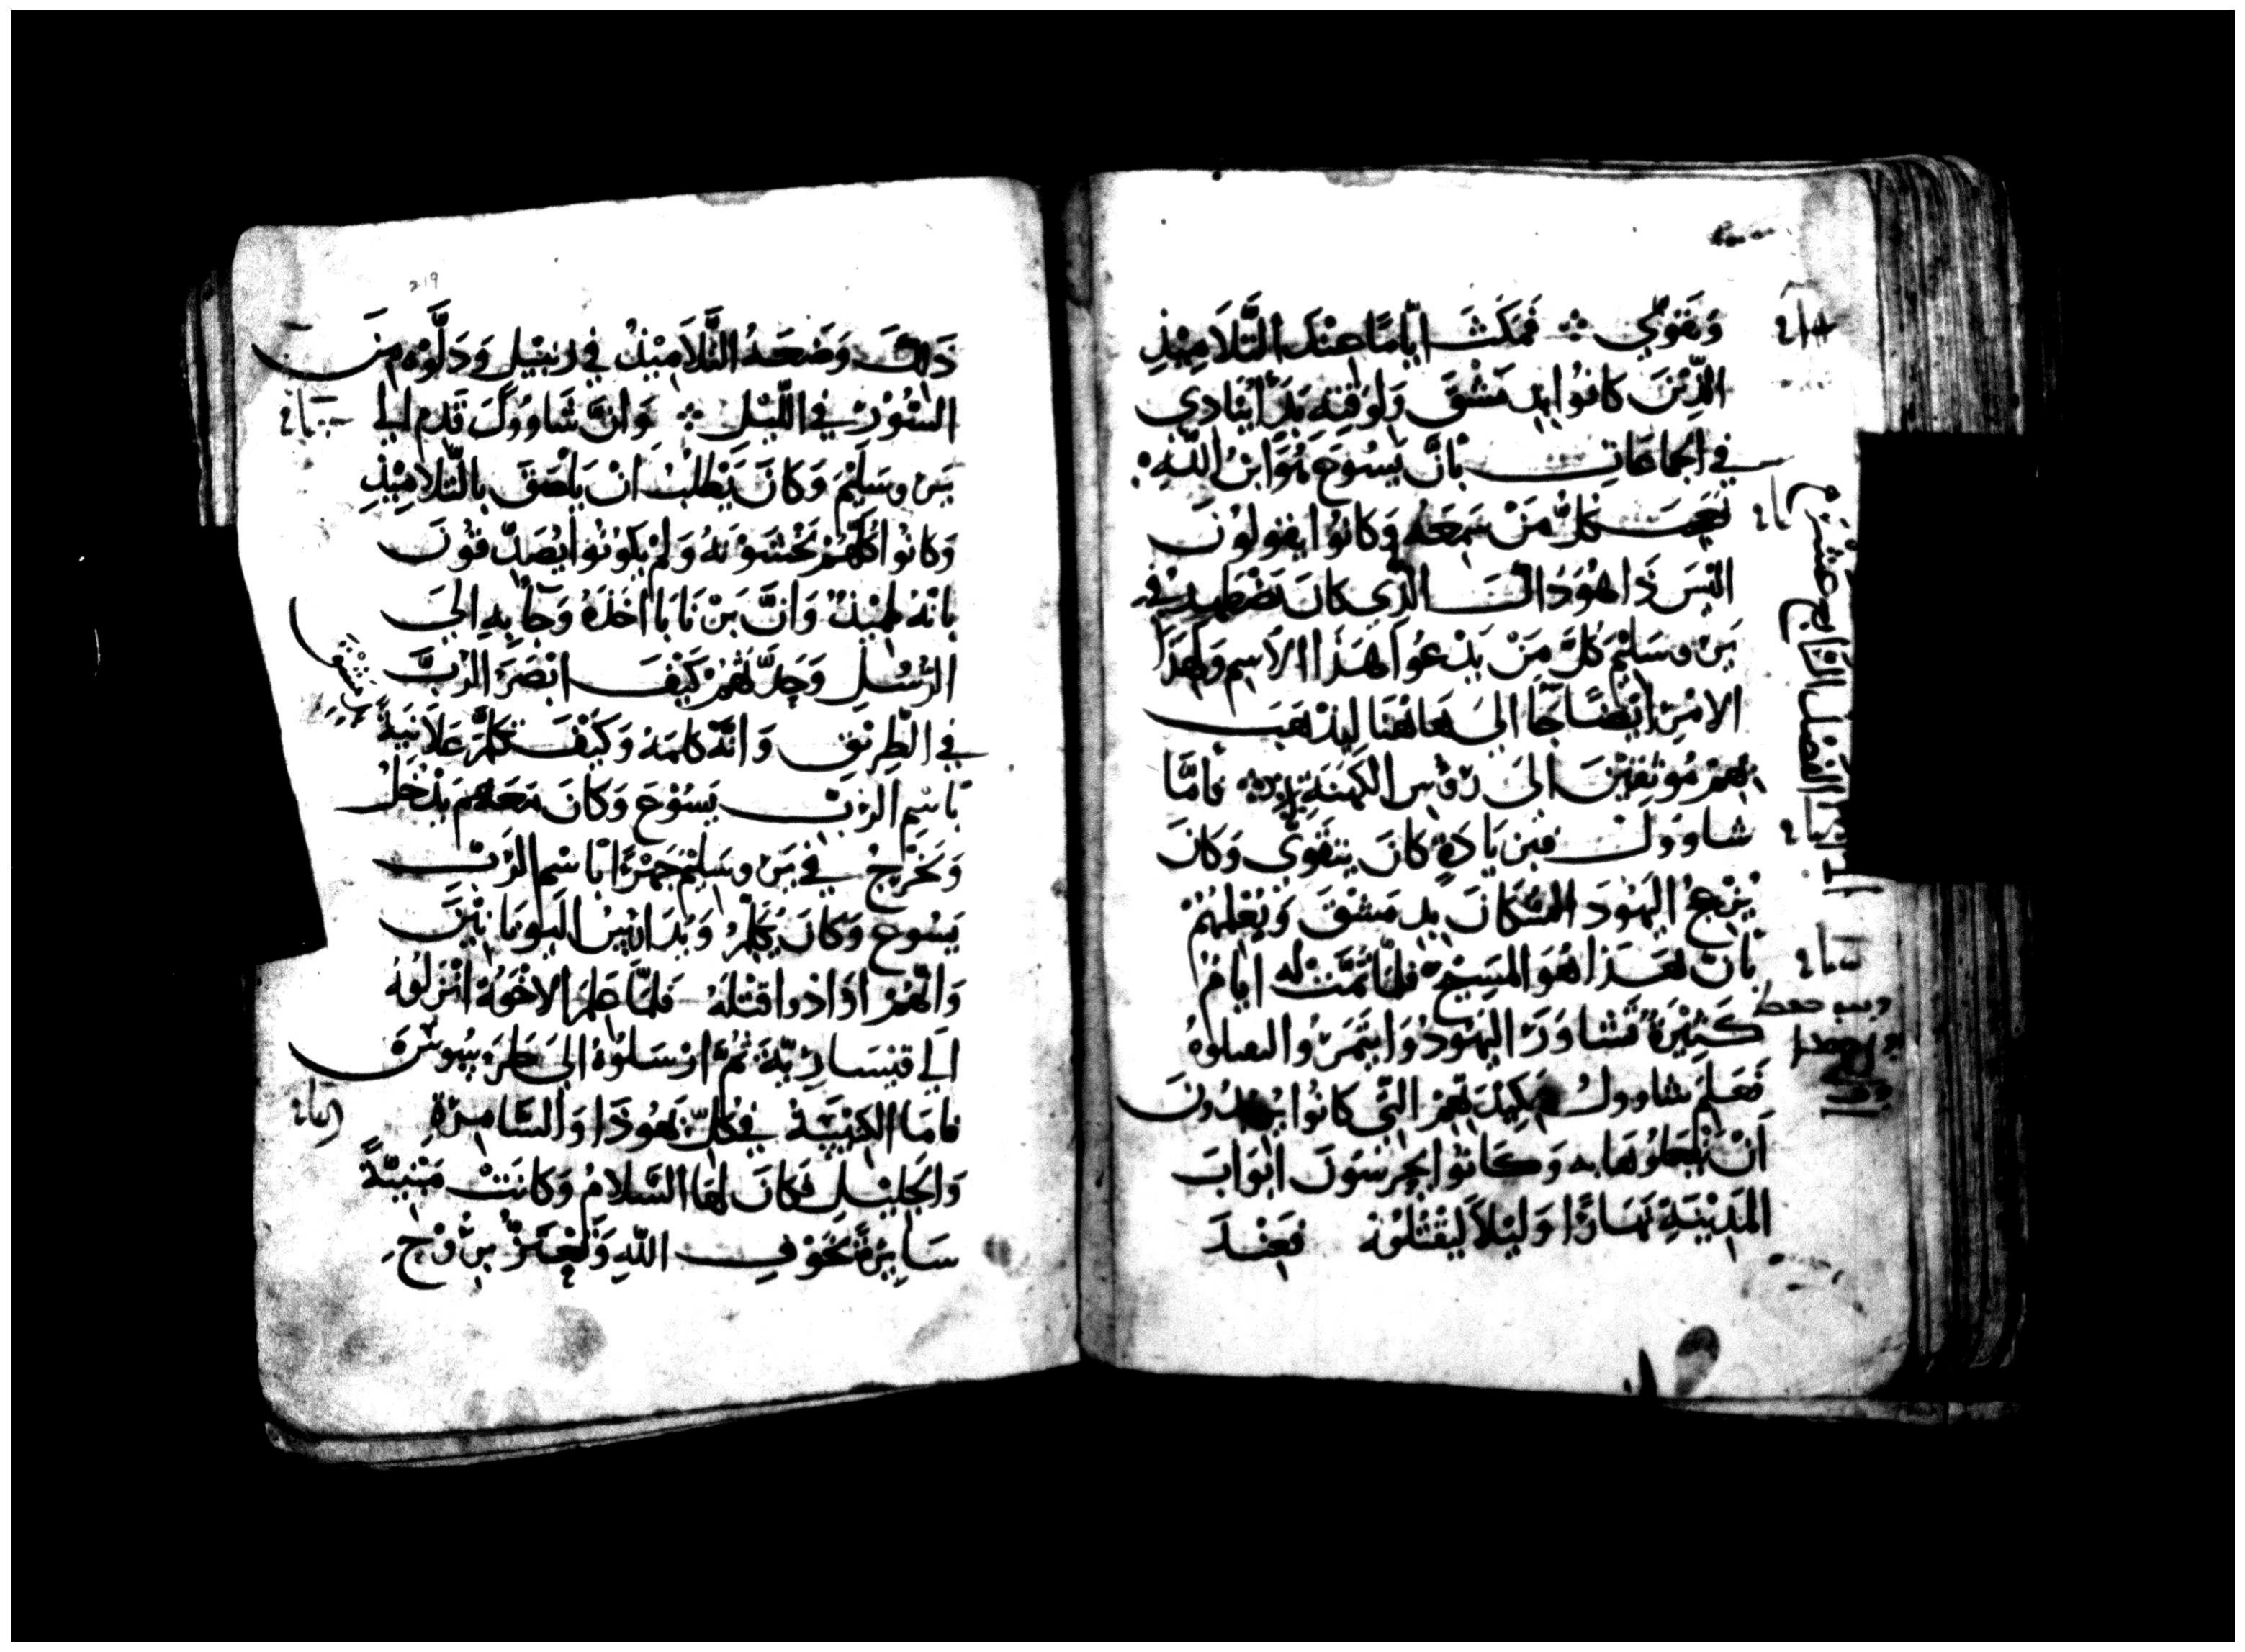 وَتَقَوَّي ܀ فَمَكَثَ ايَّامًا عِنْدَ التَّلَامِيْذِ
الَّذِيْنَ كَانُوْا بِدِمَشْقَ وَلِوَقْتِهِ بَدَأ يُنَادِي
في الجَمَاعَاتِ بَأنَّ يَسُوعَ هُوَ ابْنُ اللهِ
فَعَجِبَ كُلُّ مَنْ سَمِعَهُ وَكَانُوا يَقُولُونَ
الَيْسَ ذَا هُوَ ذَاكَ الَّذِي كَانَ يَضْطَهِدُ في
يَرُوسَلِيْمَ كُلَّ مَنْ يَدْعُوا بهَذَا الاسْمِ وَلِهَذَا
الامْرِ ايْضًا جَآ الَى هَاهُنَا ليَذْهَبَ
بِهِمْ مُوْثَقِيْنَ الَى رُؤسِ الكَهَنَةِ فَامَّا
شاوُوَلُ فَبِزِيَادَةٍ كَانَ يَتَقَوَّي وَكَانَ
يُزْعِجُ اليَهُودَ السُّكَانَ بِدِمَشْقَ وَيُعْلِمُهُمْ
بَانَّ هَذَا هُوَ المَسِيْحُ فَلمَّا تَمَّتْ لَهُ ايَّامٌ
كَثِيْرَةٌ تَشَاوَرَ اليَهُودُ وَايتَمَرُوا ليَقتلُوهُ
فَعَلِمَ شاوولُ بمَكِيْدَتِهِمْ التي كَانُوا يُرِيْدُونَ
اَنْ يَفْعَلُوْهَا بِه وَكَانُوْا يَحْرُسُوْنَ ابْوَابَ
المَدِيْنَةِ نَهَارًا وَليْلاً ليَقْتُلُوْهُ فَعِنْدَ
الفصْل الرَّابع عشرَ
219
ذَلِكَ وَضَعَهُ التَّلَامِيْذُ في زِنْبِيْلٍ وَدَلَّوْهُ مِنَ
السُّوْرِ في اللَّيْلِ ܀ وَانَّ شَاوُوْلَ قَدِمَ الي
يَرُوسَلِيْمَ وَكَانَ يَطْلُبُ انْ يَلْصَقَ بِالتَّلَامِيْذِ
وَكَانُوْا كُلُّهُمْ يَخْشَوْنَهُ وَلَمْ يَكُوْنُوْا يُصَدِّقُوْنَ
بانَّهُ تِلمِيْذٌ وَانَّ بَرْنَابَا اخَذَهُ وَجَآ بِهِ الَى
الرُّسُلِ وَحَدَّثَهُمْ كَيْفَ ابْصَرَ الرَّبَّ
في الطَّرِيْقِ وَانَّهُ كَلمَهُ وَكَيْفَ تَكَلَّمَ عَلَانِيَةً
بَاسْمِ الرَّبِّ يَسُوْعَ وَكَانَ مَعَهُمْ يَدْخُلُ
وَيَخْرُجُ في يَرُوسَلِيْمَ جَهْرًا بَاسْمِ الرَّبِّ
يَسُوعَ وَكَانَ يُكَلِّمُ وَيُدَايِنُ اليُونَانيّيْنَ
وَانَّهُمْ ارَادُوا قتْلَهُ فَلَمَّا عَلِمَ الاخْوَةُ انْزَلُوْهُ
الي قيسَارِيَّةَ ثُمَّ ارْسَلُوْهُ الَى طَرَسُوسَ
فامَا الكَنِيْسَةُ في كُلِّ يَهُوْذَا وَالسَّامِرَةِ
وَالجَلِيْلِ فَكَانَ لهَا السَّلَامُ وَكَانَتْ مَبْنِيَّةً
سَايِرَةً بخَوْفِ اللهِ وَبِتَعْزِيَةِ رُوْحِ